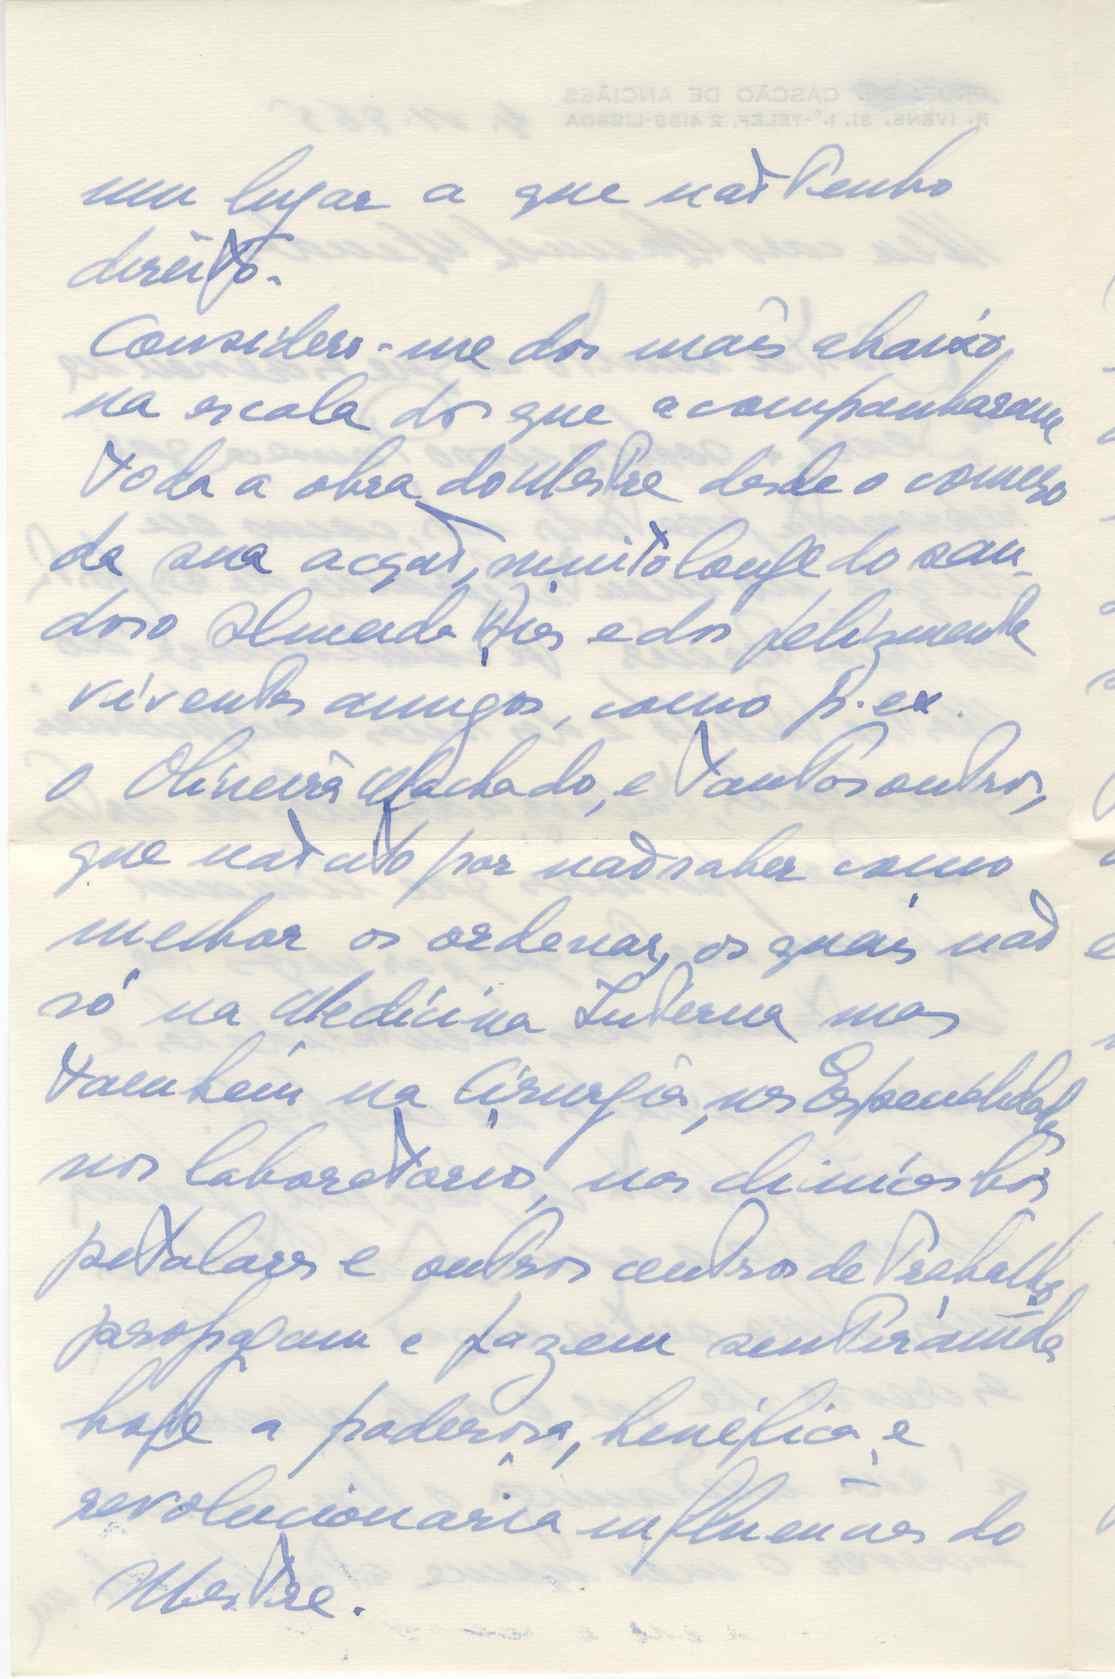 um lugar a que não tenho
direito.
Considero-me dos mais abaixo,
na escala dos que acompanharam
toda a obra do Mestre desde o começo
da sua acção, muito longe do sau-
doso Almeida Dias e dos felizmente
viventes amigos, como p. ex.
o Oliveira Machado, e tantos outros,
que não cito por não saber como
melhor os ordenar, os quais não
só na Medicina Interna mas
também na Cirurgia, nas Especialidades
nos laboratórios, nas clinicas hos
pitalares e outros centros de trabalho,
propagam e fazem sentir ainda
hoje a poderosa, benéfica, e
revolucionaria influencia do
Mestre.